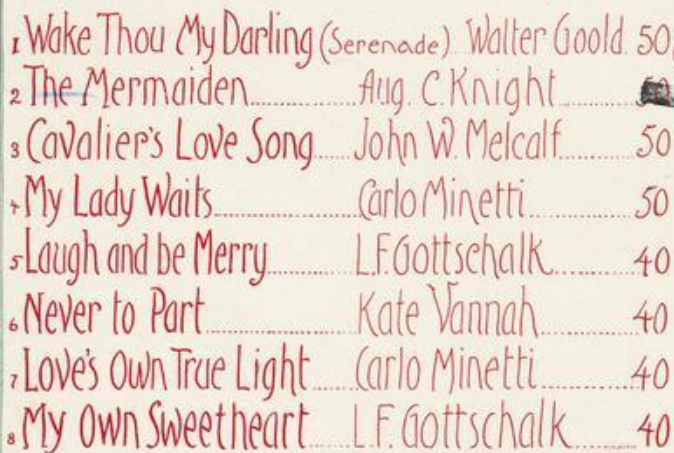 1 Wake Thou My Darling (Serenade) Walter Goold 50
2 The Mermaiden Aug. C. Knight
3 Cavalier's Love Song John W. Melcalf 50
4 My Lady Waits Carlo Minetti 50
5 Laugh and be Merry L.F. Gottschalk 40
6 Never to Part Kate Vannah 40
7 Love's Own True Light Carlo Minetti 40
8 My Own Sweetheart L.F. Gottschalk 40